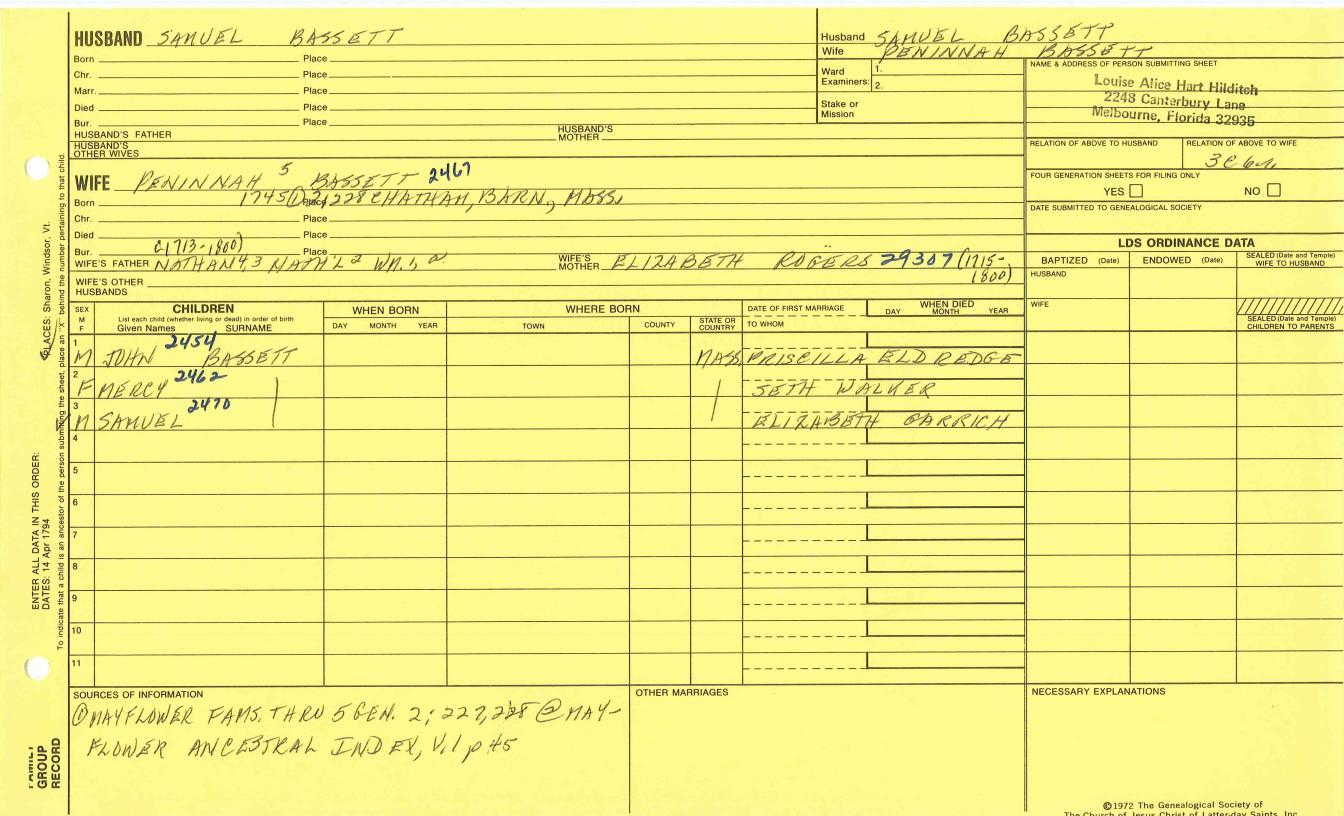 HUSBAND SAMUEL BASSETT
Born Place
Chr. Place
Marr. Place
Died Place
Bur. Place
HUSBAND'S FATHER HUSBAND'S MOTHER
HUSBAND'S OTHER WIVES
Husband SAMUEL BASSETT
Wife PENINNAH BASSETT
Ward Examiners: 1.
2.
Stake or Mission
NAME & ADDRESS OF PERSON SUBMITTING SHEET
Louise Alice Hart Hilditch
2248 Canterbury Lane
Melbourne, Florida 32935
RELATION OF ABOVE TO HUSBAND RELATION OF ABOVE TO WIFE
FOUR GENERATION SHEETS FOR FILING ONLY
YES NO
DATE SUBMITTED TO GENEALOGICAL SOCIETY
WIFE PENINNAH 5 BASSETT 2467
Born 1745 Place CHATHAM, BARN., MASS.
Chr. Place
Died Place
Bur. Place
(1713-1800)
WIFE'S FATHER NATHAN 4,3 NATH'L 2 WM.
WIFE'S MOTHER ELIZABETH ROGERS 29307 (1715-1800)
WIFE'S OTHER HUSBANDS
LDS ORDINANCE DATA
BAPTIZED (Date) ENDOWED (Date) SEALED (Date and Temple) WIFE TO HUSBAND
HUSBAND
WIFE
SEALED (Date and Temple) CHILDREN TO PARENTS
SEX M F
CHILDREN
List each child (whether living or dead) in order of birth
Given Names SURNAME
WHEN BORN
DAY MONTH YEAR
WHERE BORN
TOWN COUNTY STATE OR COUNTRY
DATE OF FIRST MARRIAGE
TO WHOM
WHEN DIED
DAY MONTH YEAR
1 M JOHN 2454 BASSETT MASS. PRISCILLA ELDREDGE
2 F MERCY 2462 SETH WALKER
3 M SAMUEL 2470 ELIZABETH GARRICH
4
5
6
7
8
9
10
11
SOURCES OF INFORMATION
① MAYFLOWER FAMS. THRU 5 GEN. 2; 227, 228 @ MAY-
FLOWER ANCESTRAL INDEX, V.1 p 45
OTHER MARRIAGES
NECESSARY EXPLANATIONS
©1972 The Genealogical Society of
The Church of Jesus Christ of Latter-day Saints, Inc.
PLACES: Sharon, Windsor, Vt.
To indicate that a child is an ancestor of the person submitting the sheet, place an "X" behind the number pertaining to that child.
ENTER ALL DATA IN THIS ORDER:
DATES: 14 Apr 1794
GROUP
RECORD